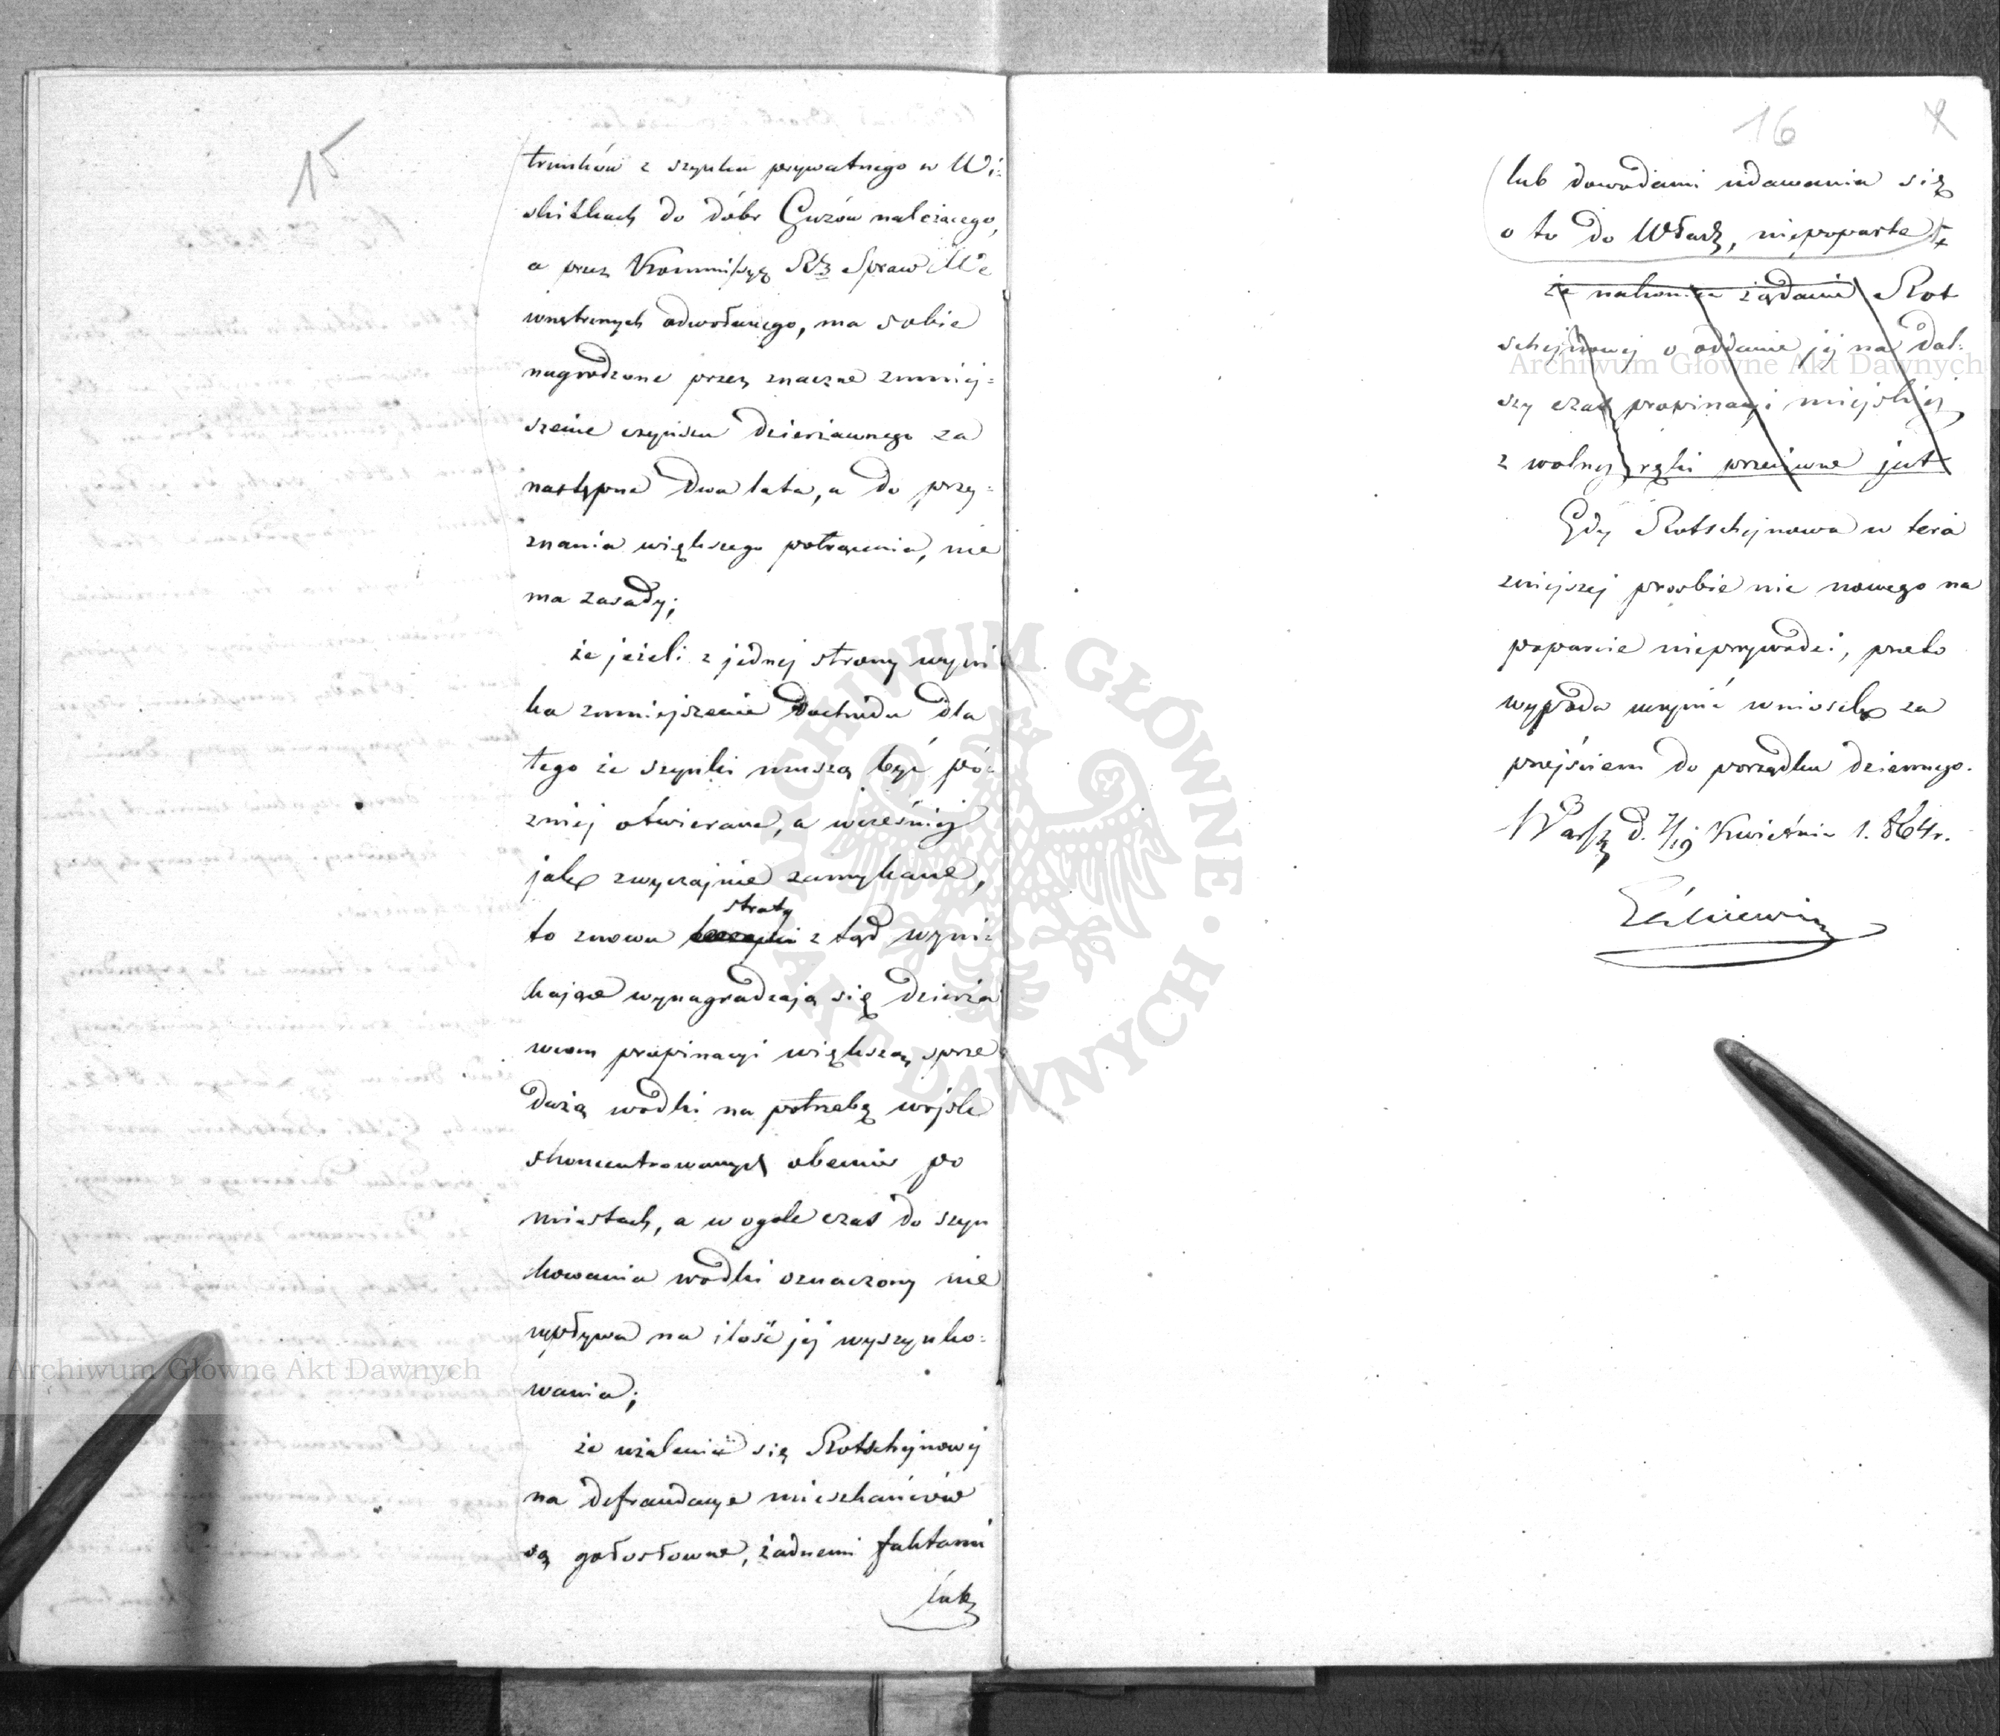 15
trunków z szynku prywatnego w Wi=
skitkach do dóbr Guzów należącego,
a przez Kommissyę Rz Spraw We
wnętrznych odwołanego, ma sobie
nagrodzone przez znaczne zmniej=
szenie czynszu dzierżawnego za
następne dwa lata, a do przy=
znania większego potrącenia, nie
ma zasady;
że jeżeli z jednej strony wyni
ka zmniejszenie dochodu dla
tego że szynki muszą być pó=
zniej otwierane, a wcześniej
jak zwyczajnie zamykane,
straty
to znowu z tąd wyni=
kające wynagradzają się dzierża
wcom propinacyi większą sprze
dażą wodki na potrzebę wojsk
skoncentrowanych obecnie po
miastach, a w ogole czas do szyn
kowania wodki oznaczony nie
wpływa na ilość jej wyszynko=
wania;
że użalenia się Rotschejnowej
na defraudacye mieszkańców
są gołosłowne, żadnemi faktami
lub
16
lub dowodami udawania się
o to do Władz, niepoparte
że nakoniec żądanie Rot
schejnowej o oddanie jej na dal=
szy czas propinacyi miejskiej
z wolnej ręki przeciwne jest
Gdy Rotschejnowa w tera
zniejszej prosbie nic nowego na
poparcie nieprzywodzi, przeto
wypada uczynić wniosek za
przejściem do porządku dziennego.
Warsz d. 7/19 Kwietnia 1864 r.
Archiwum Główne Akt Dawnych
Archiwum Główne Akt Dawnych
ARCHIWUM GŁÓWNE · AKT DAWNYCH ·